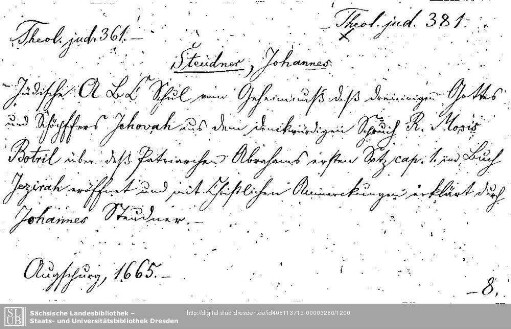 Theol. jud. 361.
Theol. jud. 381.
Steudner, Johannes
Jüdische ABC Schul vom Geheimnuß deß dreieinigen Gottes
und Schöpffers Jehovah aus dem denkwürdigen Spruch R. Mosis
Botril über deß Patriarchen Abrahams ersten Satz cap. 1. im Buch
Jezirah eröffnet und mit Christlichen Anmerckungen erklärt durch
Johannes Steudner.
Augspurg, 1665.
8.
SLUB
Sächsische Landesbibliothek –
Staats- und Universitätsbibliothek Dresden